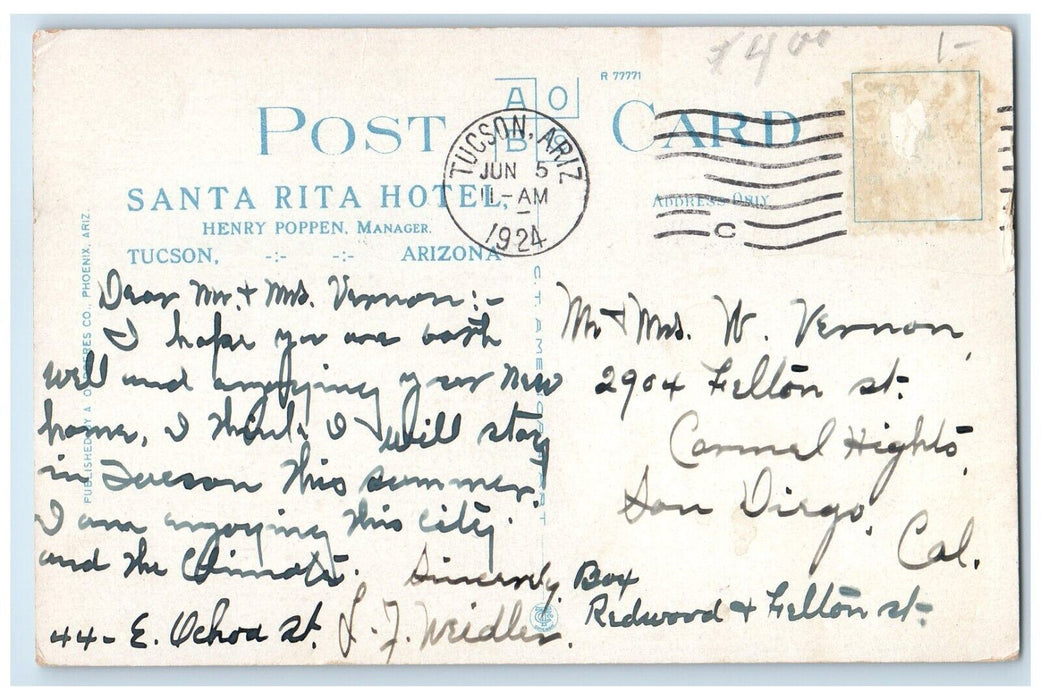 $4.00
1-
R 77771
A O
B
POST CARD
TUCSON, ARIZ
JUN 5
-AM
1924
C
SANTA RITA HOTEL,
HENRY POPPEN, MANAGER.
TUCSON, -:- -:- ARIZONA
ADDRESS ONLY.
PUBLISHED BY CO., PHOENIX, ARIZ.
C. T. AMERICAN ART
Dear Mr. + Mrs. Vernon:-
I hope you are both
well and enjoying your new
home, I think I will stay
in Tucson this summer.
I am enjoying this city
and the Climate. Sincerely,
44- E. Ochoa St. L. F. Weidler.
Mr + Mrs. W. Vernon,
2904 Felton st.
Carmel Hights,
San Diego,
Cal.
Box
Redwood + Felton st.